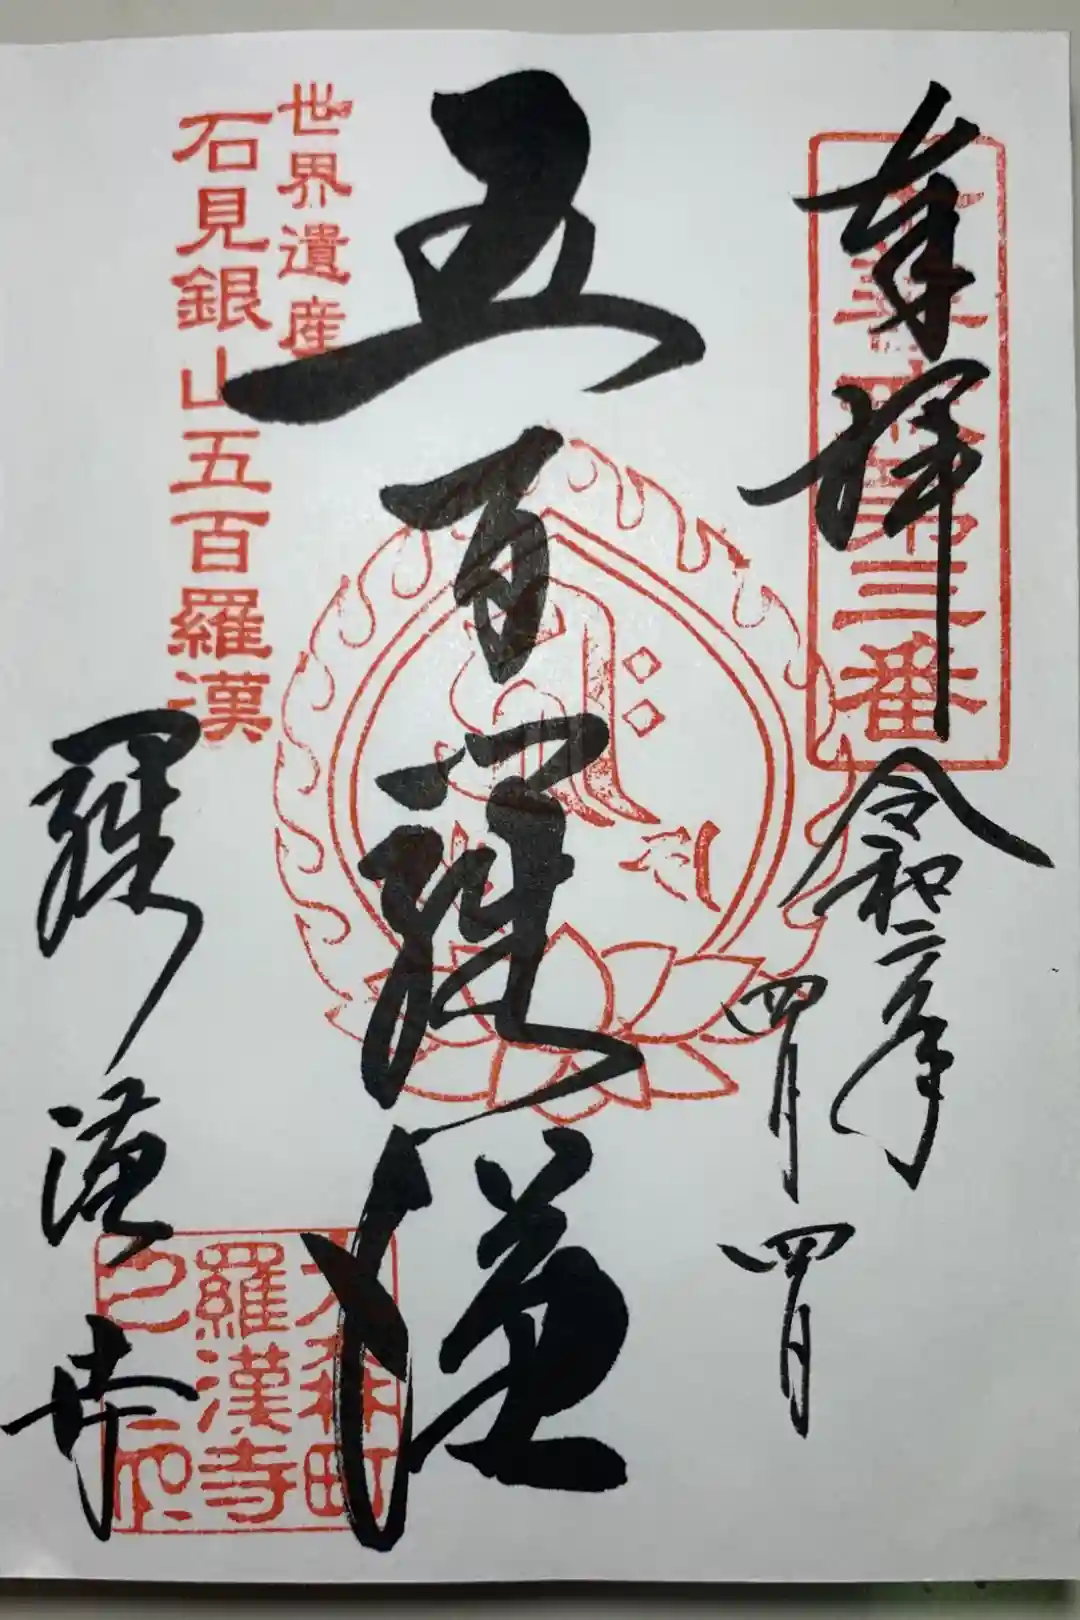 奉拝
第三番
令和二年
四月四日
五百羅漢
世界遺産
石見銀山五百羅漢
羅漢寺
大森町
羅漢寺
之印